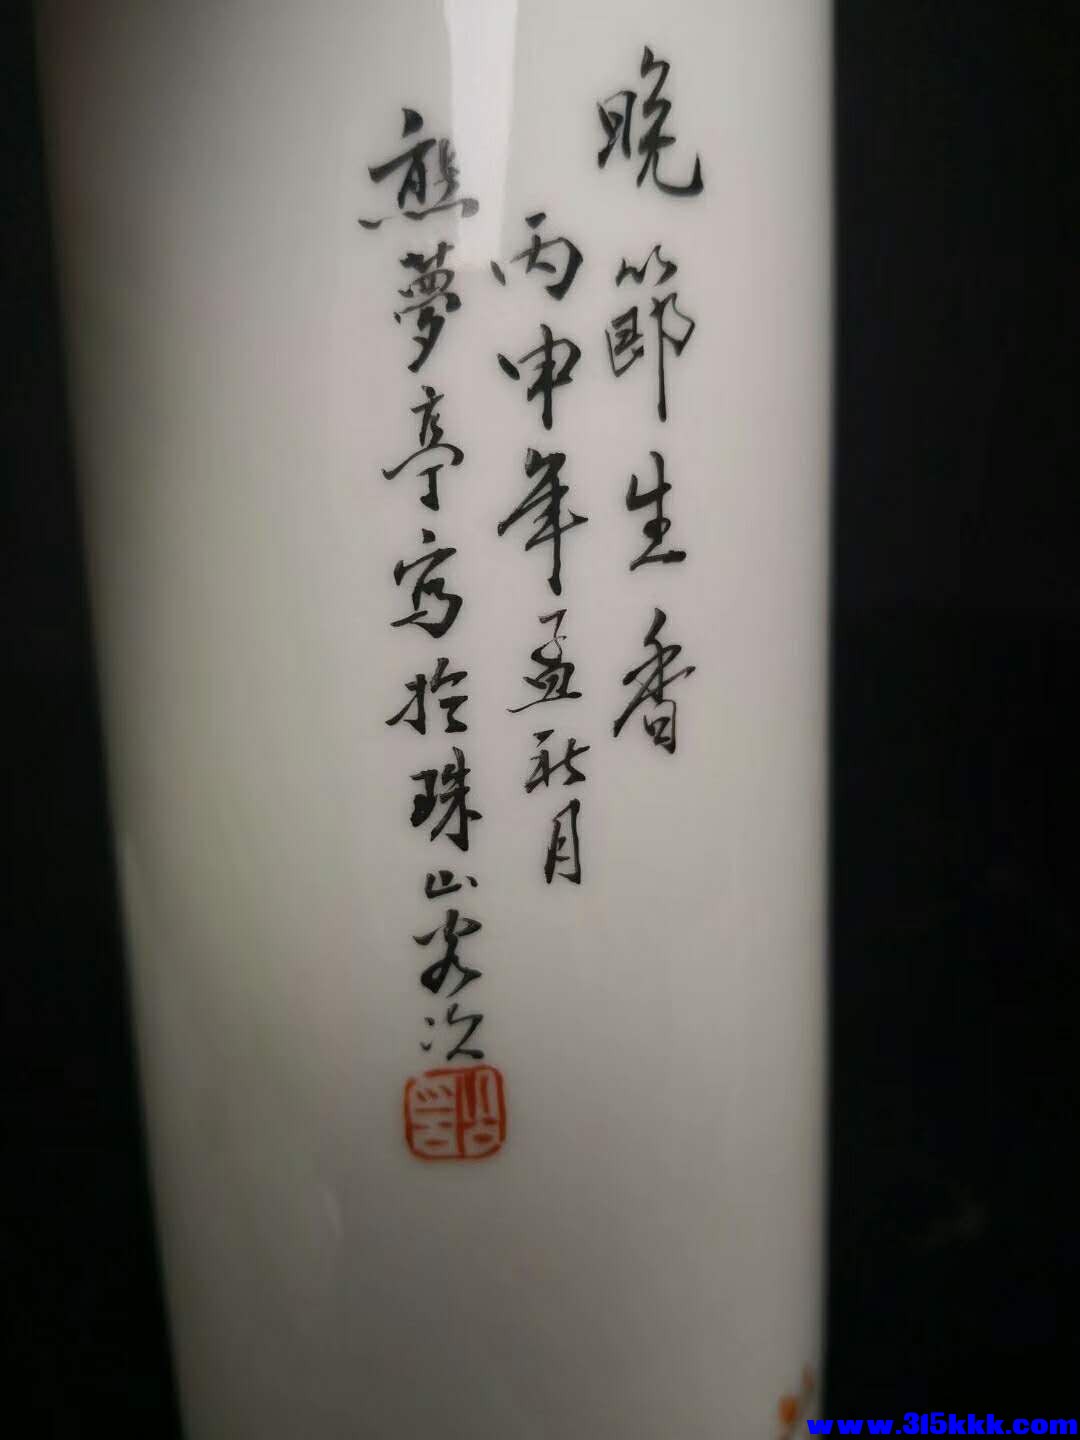 晚節生香
丙申年孟秋月
熊夢亭寫於珠山客次
www.315kkk.com